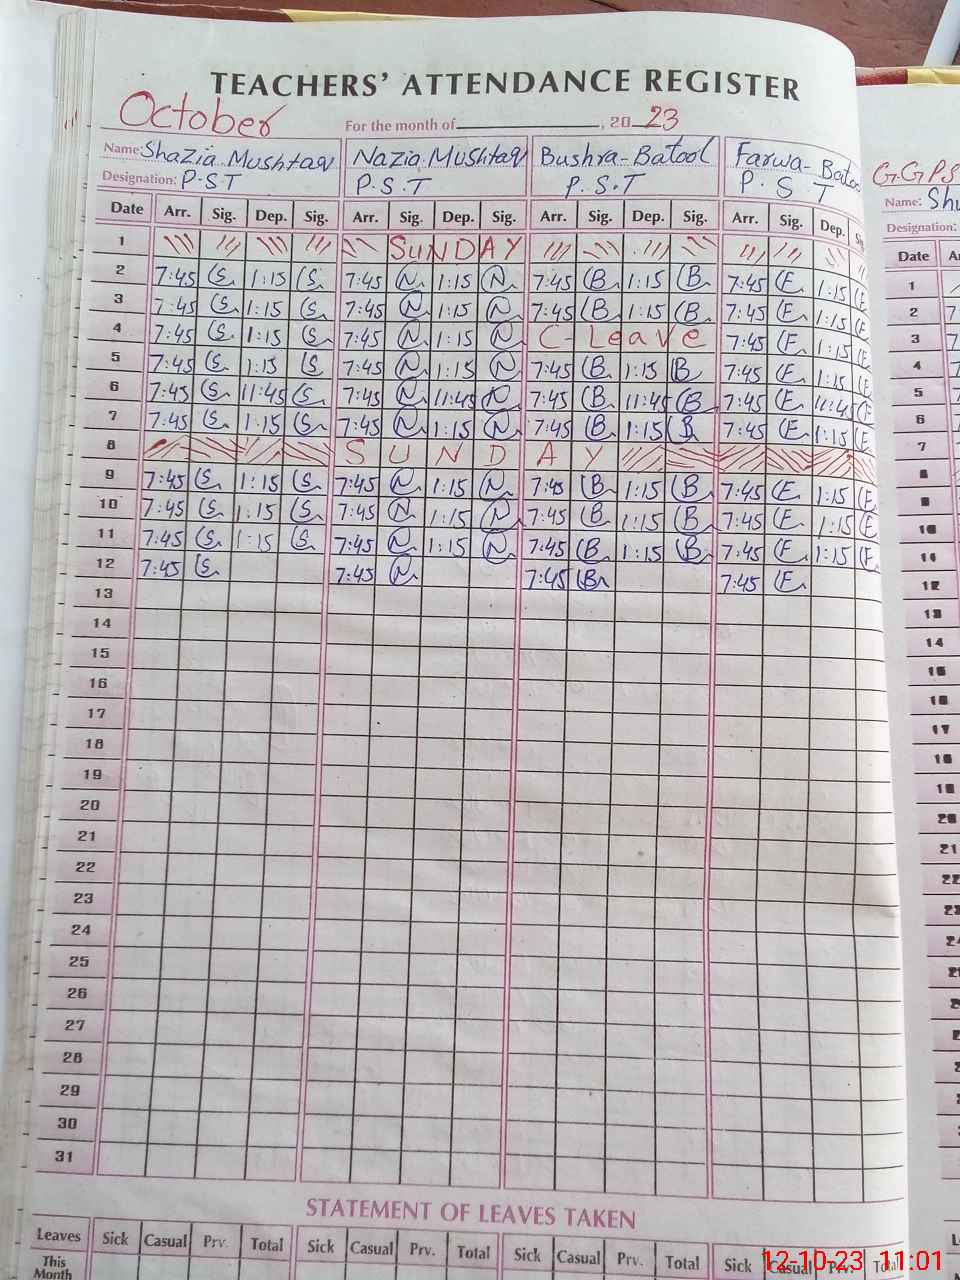 TEACHERS' ATTENDANCE REGISTER
October For the month of , 2023
Name: Shazia Mushtaq Nazia Mushtaq Bushra-Batool Farwa-Batool
Designation: P.S.T P.S.T P.S.T P.S T
Date Arr. Sig. Dep. Sig. Arr. Sig. Dep. Sig. Arr. Sig. Dep. Sig. Arr. Sig. Dep.
1 SUNDAY
2 7:45 S 1:15 S 7:45 N 1:15 N 7:45 B 1:15 B 7:45 F 1:15 F
3 7:45 S 1:15 S 7:45 N 1:15 N 7:45 B 1:15 B 7:45 F 1:15 F
4 7:45 S 1:15 S 7:45 N 1:15 N C-Leave 7:45 F 1:15 F
5 7:45 S 1:15 S 7:45 N 1:15 N 7:45 B 1:15 B 7:45 F 1:15 F
6 7:45 S 11:45 S 7:45 N 11:45 N 7:45 B 11:45 B 7:45 F 11:45 F
7 7:45 S 1:15 S 7:45 N 1:15 N 7:45 B 1:15 B 7:45 F 1:15 F
8 SUNDAY
9 7:45 S 1:15 S 7:45 N 1:15 N 7:45 B 1:15 B 7:45 F 1:15 F
10 7:45 S 1:15 S 7:45 N 1:15 N 7:45 B 1:15 B 7:45 F 1:15 F
11 7:45 S 1:15 S 7:45 N 1:15 N 7:45 B 1:15 B 7:45 F 1:15 F
12 7:45 S 7:45 N 7:45 B 7:45 F
13
14
15
16
17
18
19
20
21
22
23
24
25
26
27
28
29
30
31
STATEMENT OF LEAVES TAKEN
Leaves Sick Casual Prv. Total Sick Casual Prv. Total Sick Casual Prv. Total Sick Casual Prv. Total
This
Month
G.G.P.S
Name:
Designation:
Date
1
2
3
4
5
6
7
8
9
10
11
12
13
14
15
16
17
18
19
20
21
22
12-10-23 11:01